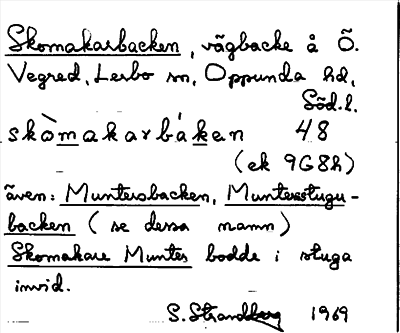 Skomakarbacken, vägbacke å Ö.
Vegred, Lerbo sn, Oppunda hd,
Söd.l.
skò̲makarbá̲ken 48
(ek 9G8h)
även: Muntersbacken, Muntersstugu-
backen (se dessa namn)
Skomakare Munter bodde i stuga
invid.
S. Strandberg 1969